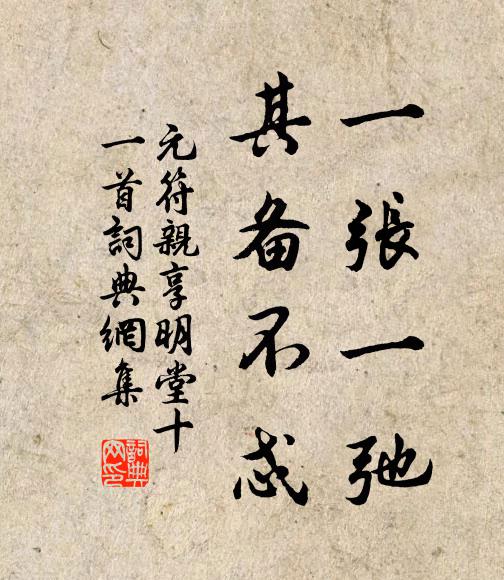 一張一弛
其备不忒
元符親享明堂十
一首詞典網集
詞典网印